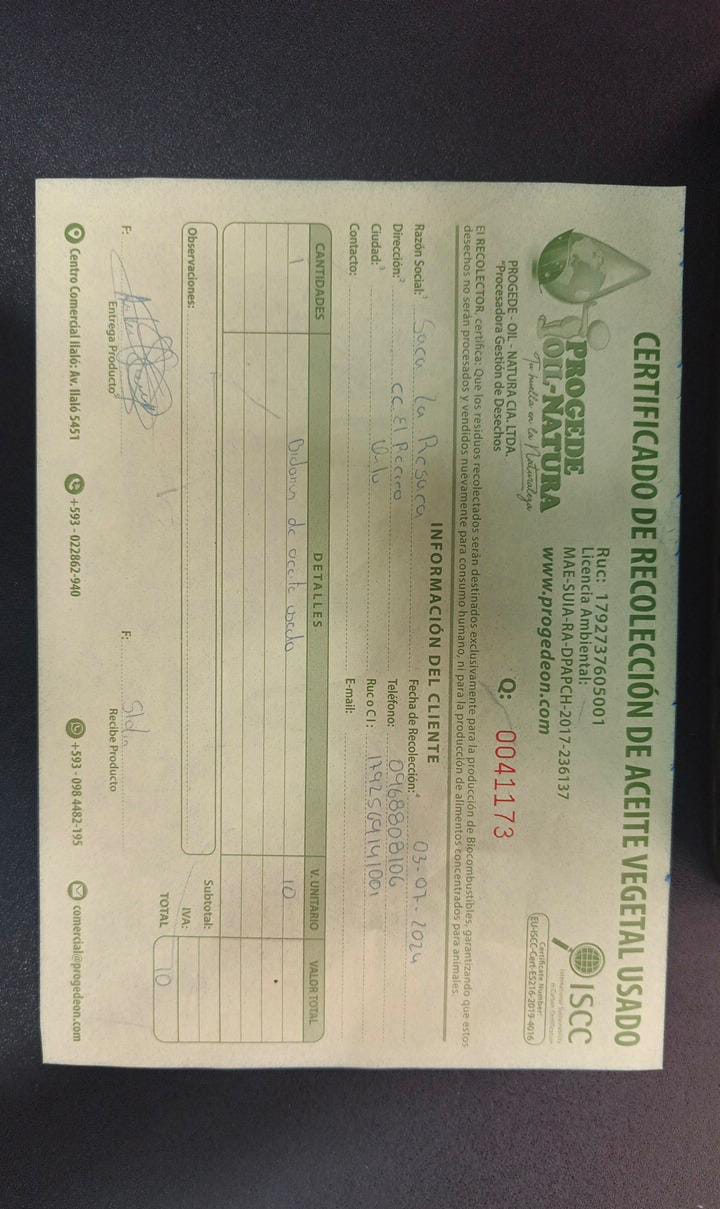 CERTIFICADO DE RECOLECCIÓN DE ACEITE VEGETAL USADO
PROGEDE
OIL-NATURA
Tu huella en la Naturaleza
PROGEDE - OIL - NATURA CIA. LTDA.
"Procesadora Gestión de Desechos
Ruc: 1792737605001
Licencia Ambiental:
MAE-SUIA-RA-DPAPCH-2017-236137
www.progedeon.com
Q: 0041173
ISCC
International Sustainability
& Carbon Certification
Certificate Number:
EU-ISCC-Cert-ES216-2019-4016
El RECOLECTOR, certifica: Que los residuos recolectados serán destinados exclusivamente para la producción de Biocombustibles, garantizando que estos
desechos no serán procesados y vendidos nuevamente para consumo humano, ni para la producción de alimentos concentrados para animales.
INFORMACIÓN DEL CLIENTE
Razón Social:¹ Saca la Resaca Fecha de Recolección:⁴ 03-07-2024
Dirección:² CC El Recreo Teléfono: 0968808106
Ciudad:³ Quito Ruc o C I : 1792569141001
Contacto: E-mail:
CANTIDADES DETALLES V. UNITARIO VALOR TOTAL
1 Bidones de aceite usado 10
Observaciones:
Subtotal:
IVA:
TOTAL 10
F: F:
Entrega Producto Recibe Producto
Centro Comercial Ilaló: Av. Ilaló 5451 +593 - 022862-940 +593 - 098 4482-195 comercial@progedeon.com